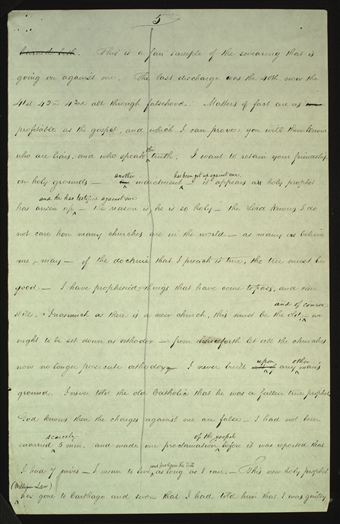 5
Beards both. This is a fair sample of the swearing that is
going on against me. The last discharge was the 40th. now the
41st 42d 43d all through falsehood. Matters of fact are as
profitable as the gospel, and which I can prove. you will then know
who are liars, and who speak the truth. I want to retain your friendship
on holy grounds — another indictment has been got up against me. it appears a holy prophet
has arisen up and he has testified against me — the reason is, he is so holy — the Lord knows I do
not care how many churches are in the world — as many as believe
me, may — if the doctrine that I preach is true, the tree must be
good — I have prophesied things that have come to pass, and can
still. Inasmuch as there is a new church, this must be the old, and of course we
ought to be set down as orthodox — from henceforth let all the churches
now no longer persecute orthodoxy. I never built upon any other man's
ground — I never told the old Catholic that he was a fallen true prophet
God knows then the charges against me are false — I had not been
married scarcely 5 min. and made one proclamation of the gospel before it was reported that
I had 7 wives — I mean to live and proclaim the truth as long as I can. — This new holy prophet
(William Law) has gone to Carthage and swore that I had told him that I was guilty